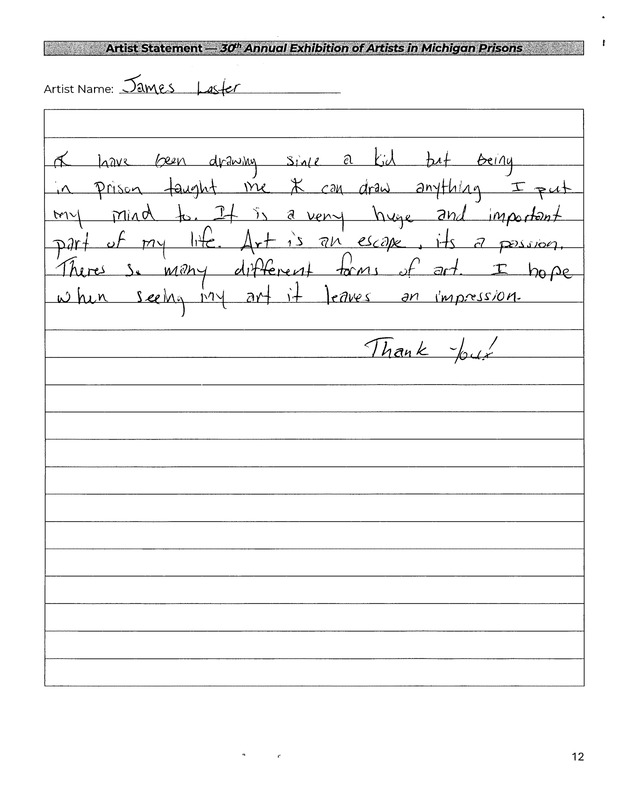 Artist Statement — 30th Annual Exhibition of Artists in Michigan Prisons
Artist Name: James Laster
I have been drawing since a kid but being
in prison taught me I can draw anything I put
my mind to. It is a very huge and important
part of my life. Art is an escape, its a passion.
Theres so many different forms of art. I hope
when seeing my art it leaves an impression.
Thank you!
12